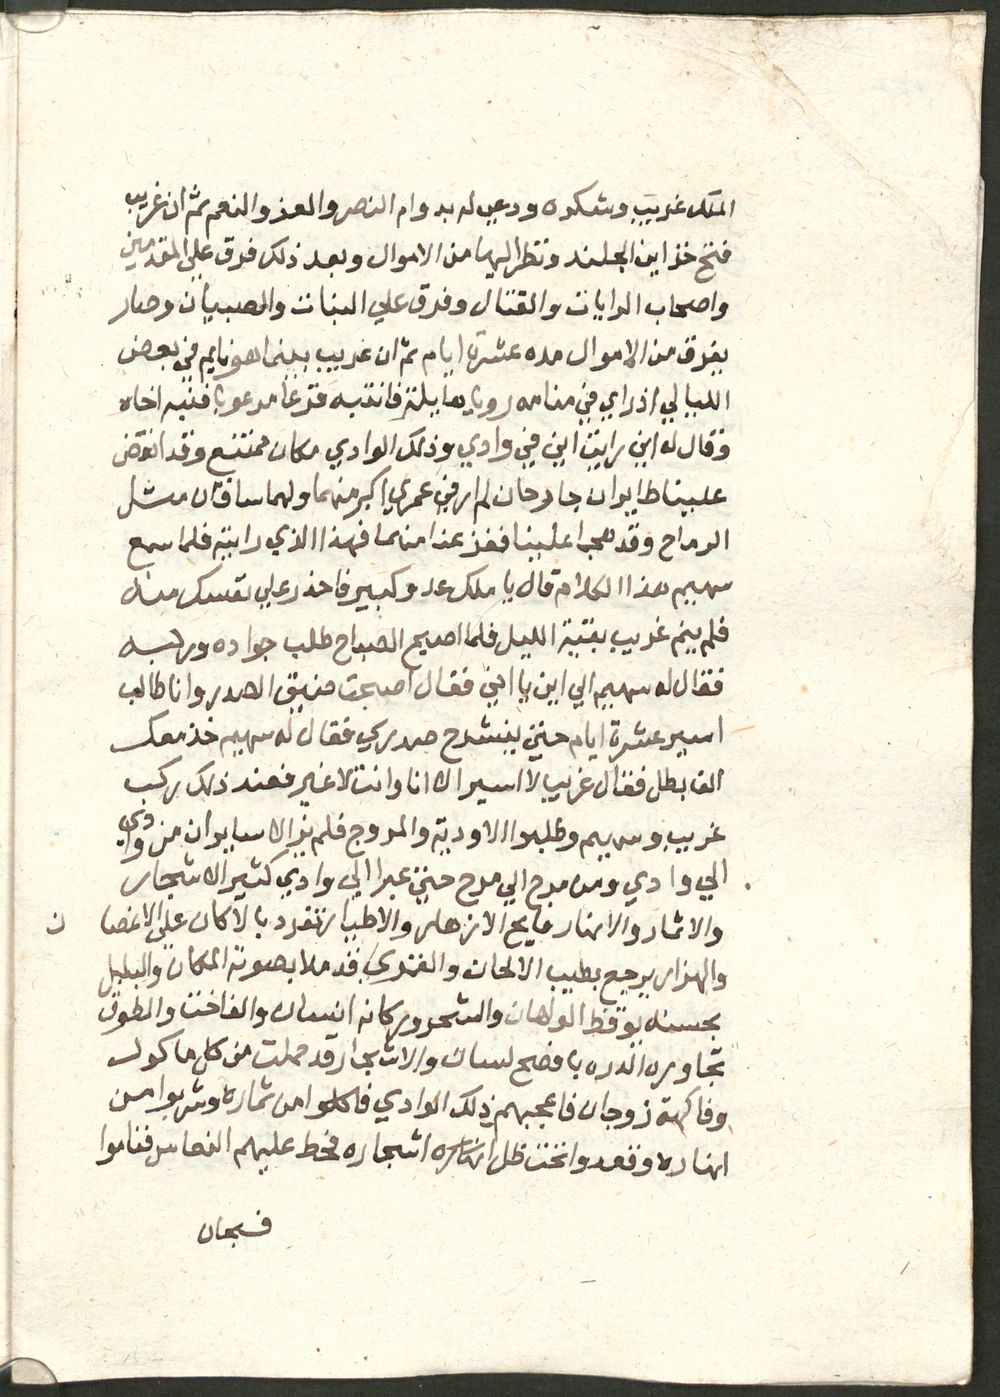 الملك غريب وشكروه ودعي له بدوام النصر والعز والنعم ثم ان غريب
فتح خزاين الجلند ونظر اليها من الاموال وبعد ذلك فرق علي المقدمين
واصحاب الرايات والقتال وفرق علي البنات والصبيان وصار
يفرق من الاموال مده عشرة ايام ثم ان غريب بينما هو نايم في بعض
الليالي اذ راي في منامه رويا هايلة فانتبه فزعا مرعوبا فنبه اخاه
وقال له اني رايت اني في وادي وذلك الوادي مكان ممتنع وقد انقض
علينا طايران جارحان لم ار في عمري اكبر منهما ولهما ساقان مثل
الرماح وقد هجما علينا ففزعنا منهما فهذا الذي رايته فلما سمع
سهيم هذا الكلام قال يا ملك عدو كبير فاحذر علي نفسك منه
فلم ينم غريب بقية الليل فلما اصبح الصباح طلب جواده وركبه
فقال له سهيم الي اين يا اخي فقال اصبحت ضيق الصدر وانا طالب
اسير عشرة ايام حتي ينشرح صدري فقال له سهيم خذ معك
الف بطل فقال غريب لا اسير الا انا وانت لا غير فعند ذلك ركب
غريب وسهيم وطلبوا الاودية والمروج فلم يزالا سايران من وادي
الي وادي ومن مرج الي مرج حتي عبرا الي وادي كثير الاشجار
والاثمار والانهار فايح الازهار والاطيار تغرد بالاكان علي الاغصا ن
والهزار يرجع بطيب الالحان والقمري قد ملا بصوته المكان والبلبل
بحسنه يوقظ الولهان والشحرور كانه انسان والفاخت والمطوق
تجاوره الدره بافصح لسان والاشجار قد حملت من كل ماكول
وفاكهة زوجان فاعجبهم ذلك الوادي فاكلوا من ثماره وشربوا من
انهاره وقعدوا تحت ظل اشجاره فحط عليهم النعاس فناموا
فسبحان